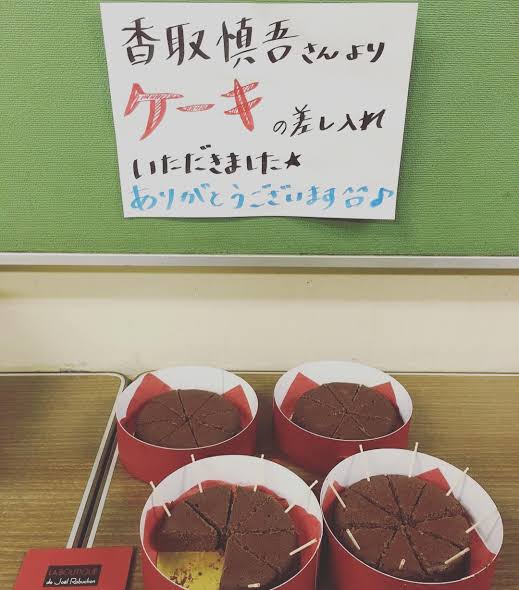 香取慎吾さんより
ケーキの差し入れ
いただきました★
ありがとうございます^^♪
LA BOUTIQUE
de Joël Robuchon